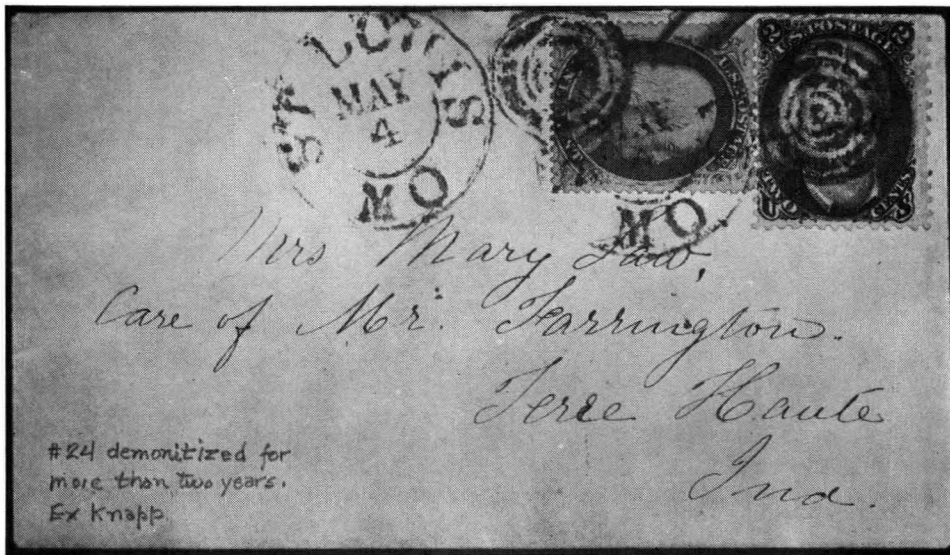 ST LOUIS
MAY
4
MO
U.S. POSTAGE
MO
Mrs Mary Law,
Care of Mr. Farrington.
Terre Haute
Ind.
#24 demonitized for
more than two years.
Ex Knapp